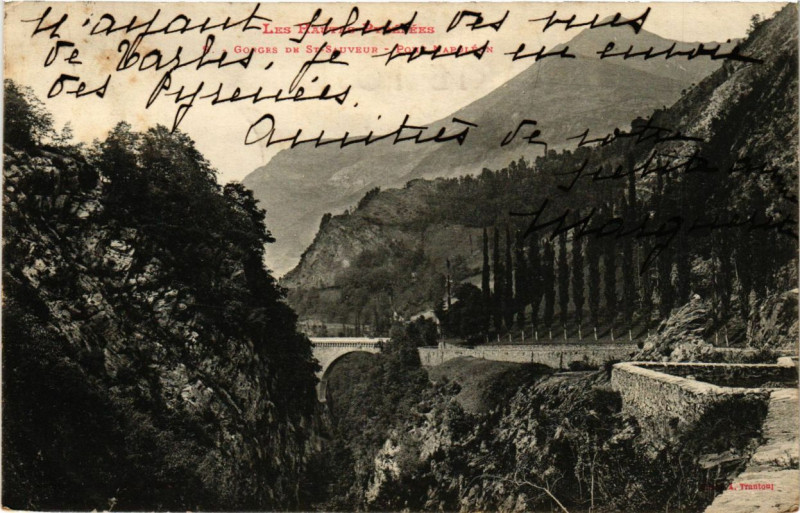 LES HAUTES-PYRÉNÉES
N'ayant plus des vues
9. GORGES DE ST-SAUVEUR - PONT NAPOLÉON
de Tarbes, je vous en envoie
des Pyrénées.
Amitiés de votre
petite amie
Marguerite
A. Trantoul